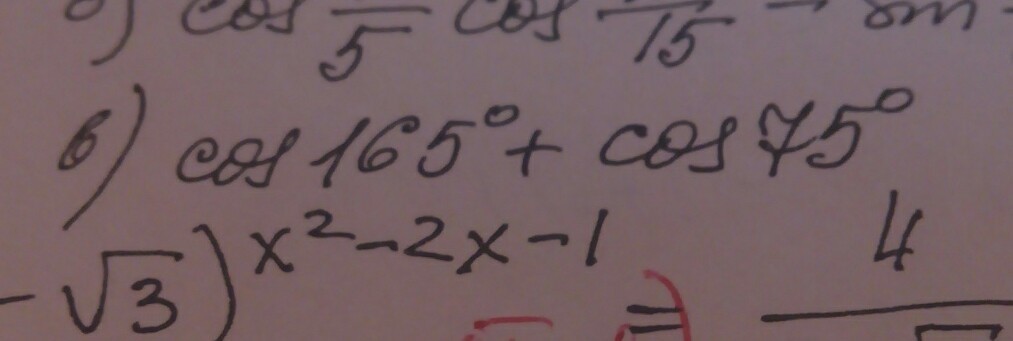 cos/5 cos/15 -
в) cos 165° + cos 75°
-√3)^x²-2x-1 = 4/√